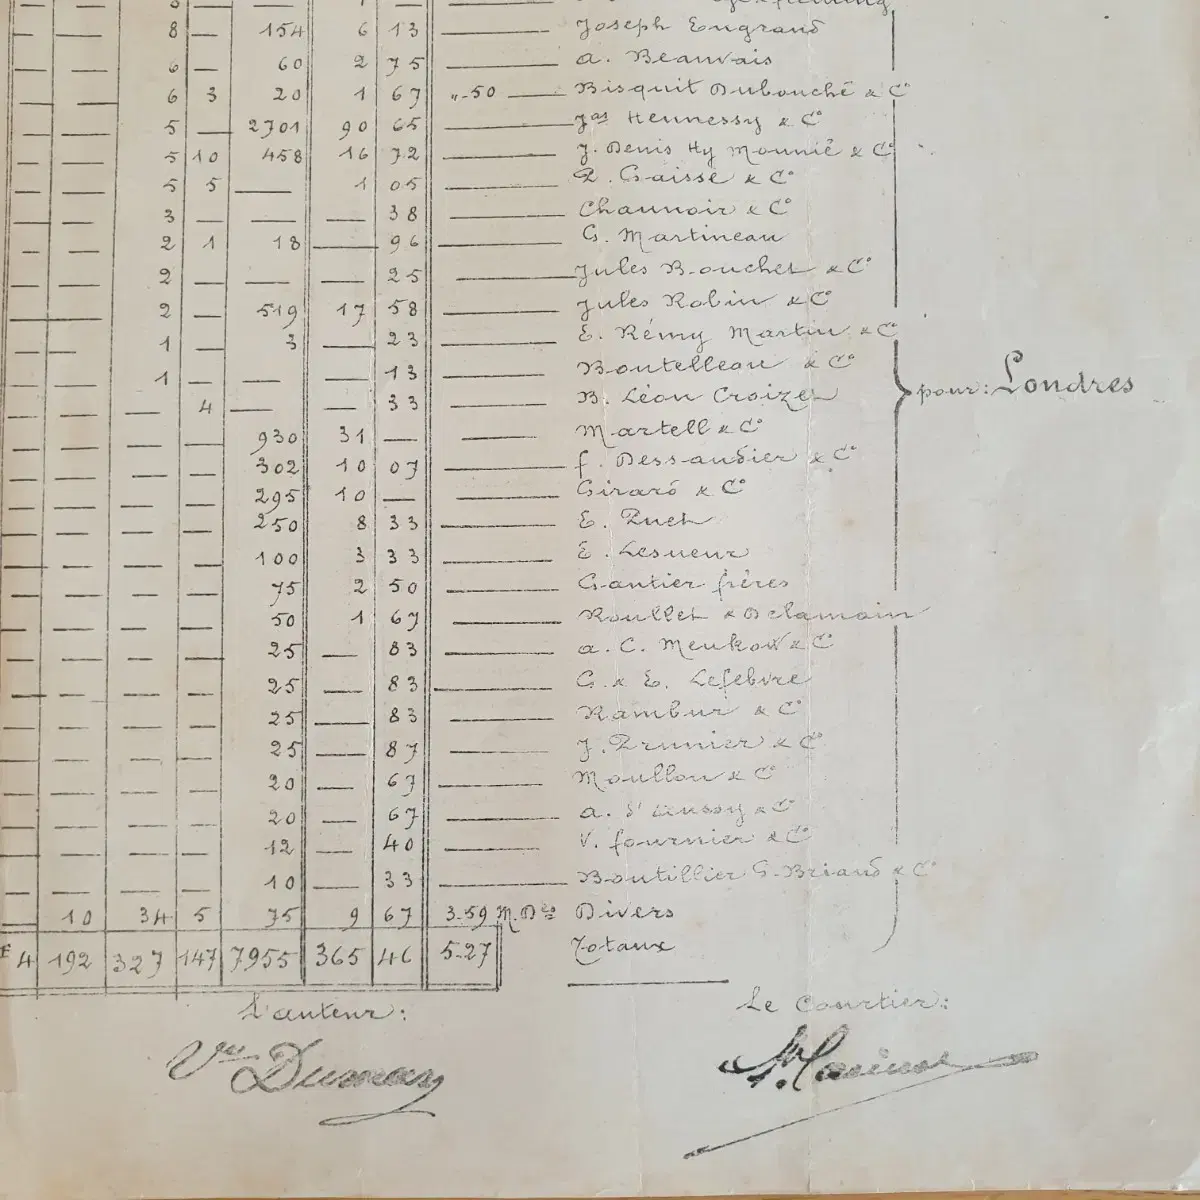 8 — 154 6 13 — Joseph Engrand
6 — 60 2 75 — A. Beauvais
6 3 20 1 67 "-50 — Bisquit Dubouché & Cº
5 — 2701 90 65 — Jas Hennessy & Cº
5 10 458 16 72 — J. Denis Hy Mounié & Cº
5 5 — 1 05 — P. Gaisse & Cº
3 — — — 38 — Chaunoir & Cº
2 1 18 — 96 — G. Martineau
2 — — — 25 — Jules Bouchet & Cº
2 — 519 17 58 — Jules Robin & Cº
1 — 3 — 23 — E. Rémy Martin & Cº
1 — — — 13 — Boutelleau & Cº
— 4 — — 33 — B. Léon Croizet
pour: Londres
— — 930 31 — — Martell & Cº
— — 302 10 07 — F. Dessandier & Cº
— — 295 10 — — Girard & Cº
— — 250 8 33 — E. Puet
— — 100 3 33 — E. Lesueur
— — 75 2 50 — Gantier frères
— — 50 1 67 — Roullet & Delamain
— — 25 — 83 — A. C. Meukow & Cº
— — 25 — 83 — G. & E. Lefebvre
— — 25 — 83 — Rambur & Cº
— — 25 — 87 — J. Prunier & Cº
— — 20 — 67 — Moullon & Cº
— — 20 — 67 — A. & Cº
— — 12 — 40 — V. Fournier & Cº
— — 10 — 33 — Boutillier G. Briand & Cº
10 34 5 75 9 67 3-59 Divers
4 192 327 147 7955 365 46 5-27 Totaux
L'auteur: Le Courtier:
Vve Dumay